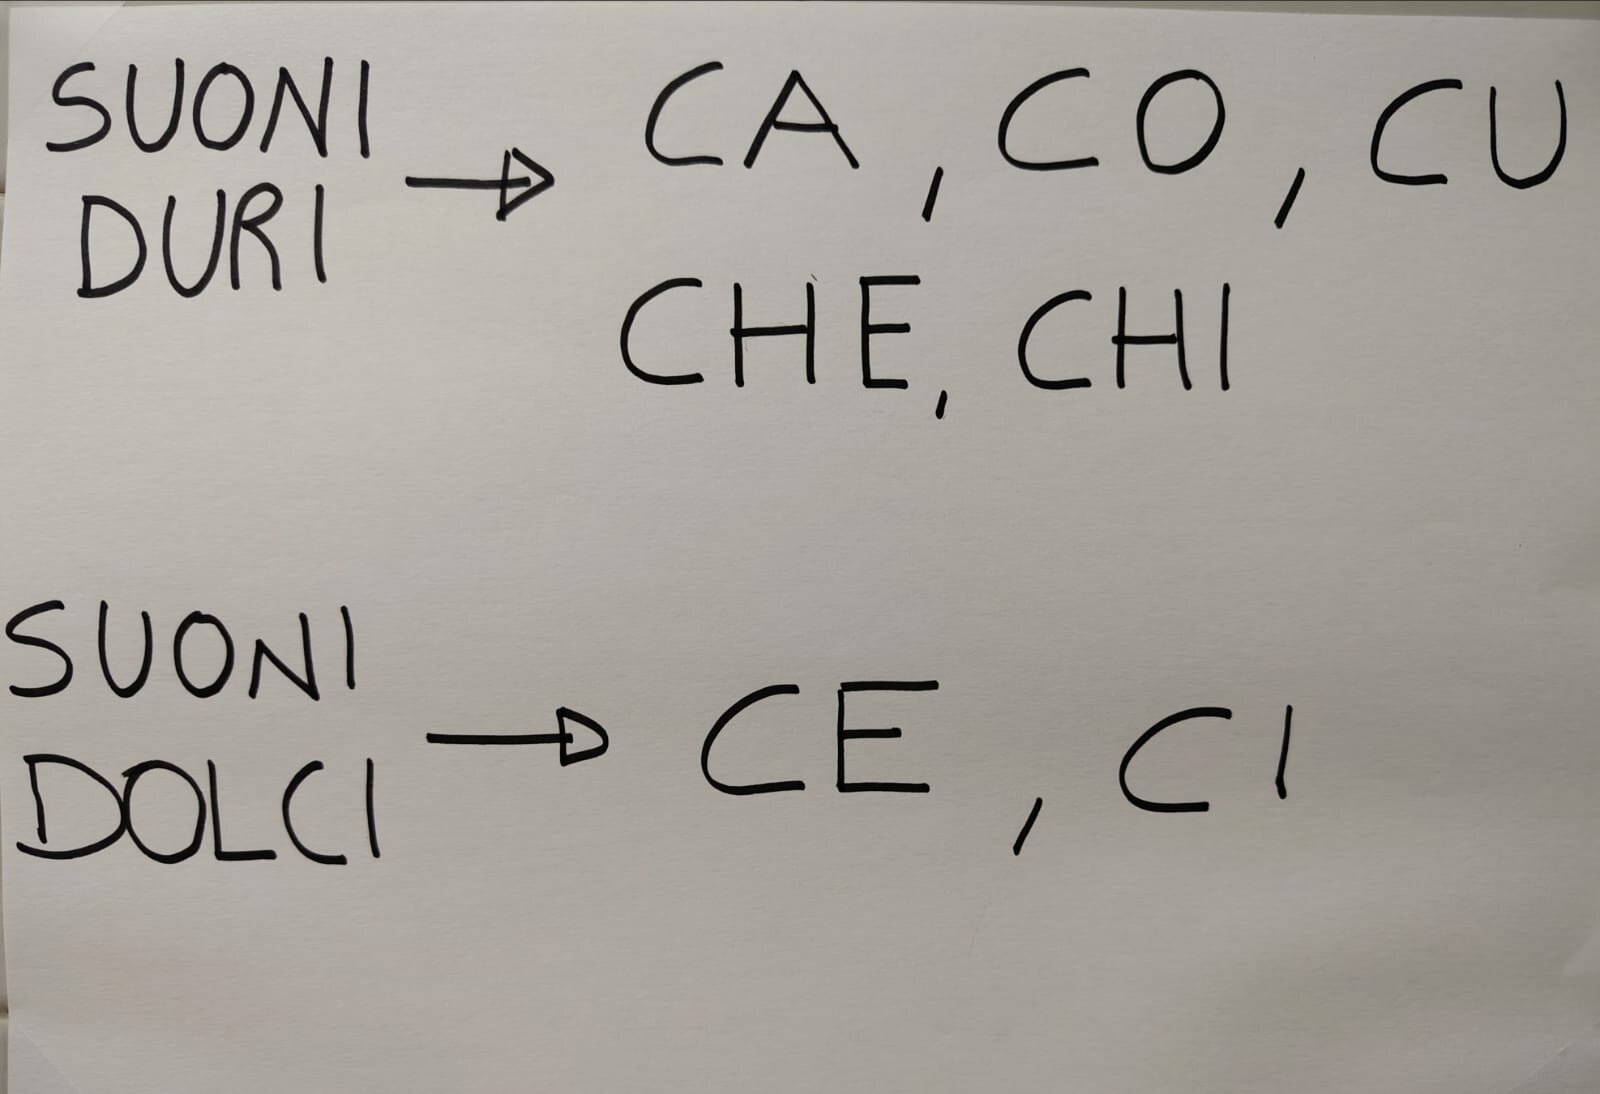 SUONI
DURI → CA, CO, CU
CHE, CHI
SUONI
DOLCI → CE, CI